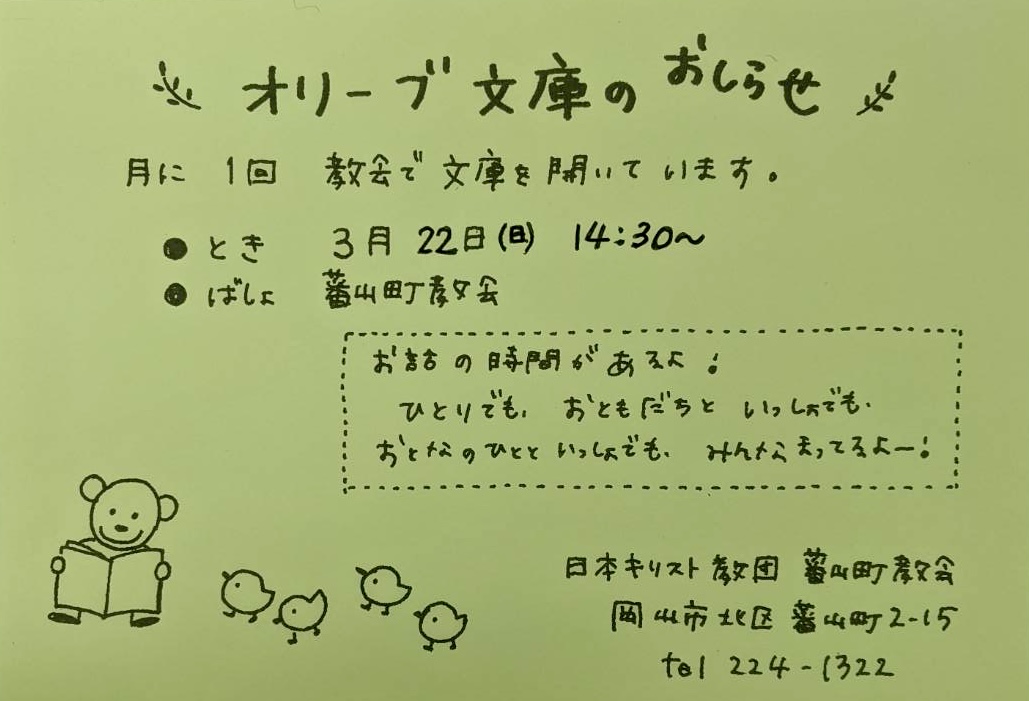 オリーブ文庫のおしらせ
月に 1回 教会で文庫を開いています。
● とき 3月 22日(日) 14:30〜
● ばしょ 蕃山町教会
お話の時間があるよ!
ひとりでも、おともだちと いっしょでも、
おとなのひとと いっしょでも、みんな まってるよー!
日本キリスト教団 蕃山町教会
岡山市北区 蕃山町2-15
tel 224-1322